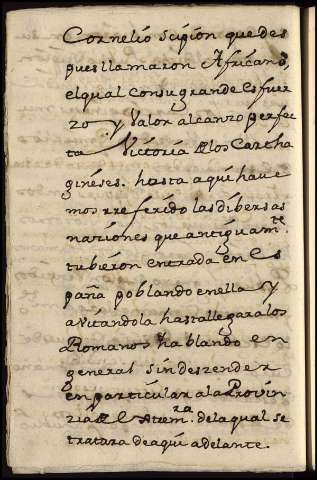 Cornelio scipion que des
pues llamaron Africano,
el qual con su grande esfuer
zo y valor alcanzo perfec
ta Victoria de los Cartha
gineses. hasta aqui have
mos rreferido las dibersas
nationes que antiguamte
tubieron entrada en Es
paña poblando en ella y
avitandola hasta llegar a los
Romanos hablando en
general sin deszender
en particular a la Provin
zia de Estremra. de la qual se
tratara de aqui adelante.